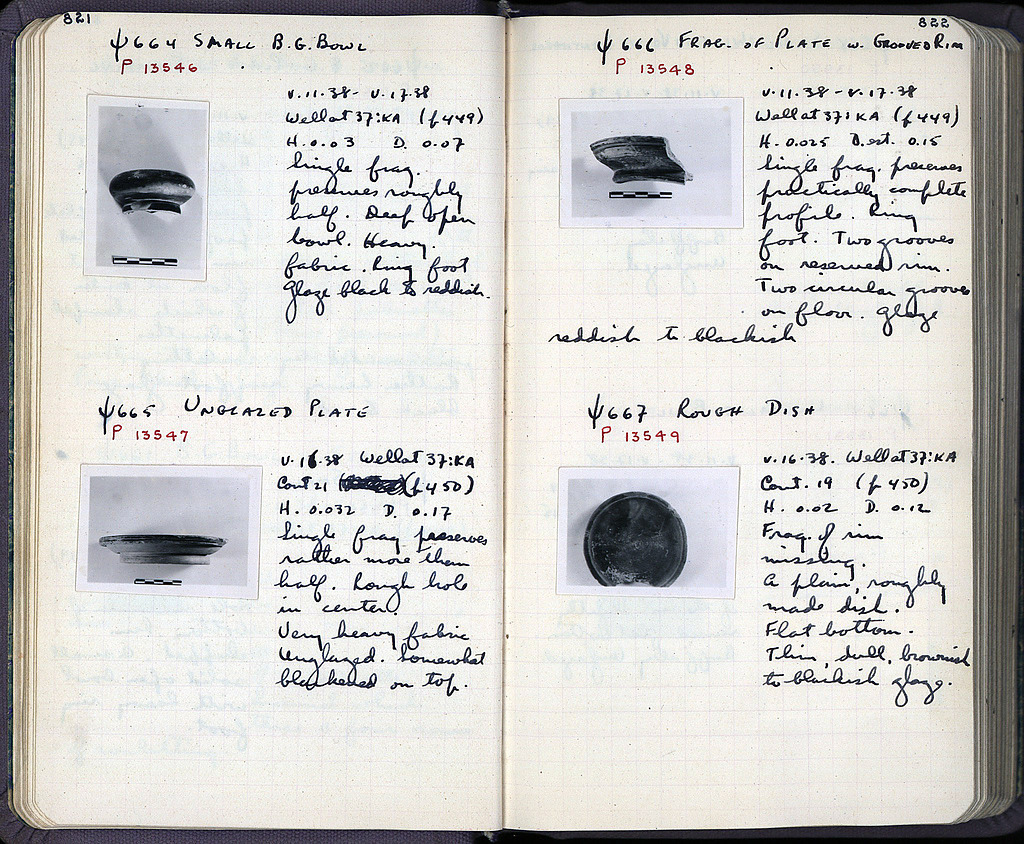 821
ψ664 SMALL B.G. BOWL
P 13546
V.11.38 - V.17.38
Well at 37:KA (p 449)
H. 0.03 D. 0.07
Single frag.
preserves roughly
half. Deep open
bowl. Heavy
fabric. Ring foot
Glaze black to reddish.
ψ665 UNGLAZED PLATE
P 13547
V.16.38 Well at 37:KA
Cont 21 (p 450)
H. 0.032 D. 0.17
Single frag preserves
rather more than
half. Rough hole
in center.
Very heavy fabric
Unglazed. Somewhat
blackened on top.
822
ψ666 FRAG. OF PLATE W. GROOVED RIM
P 13548
V.11.38 - V.17.38
Well at 37:KA (p 449)
H. 0.025 D. est. 0.15
Single frag. preserves
practically complete
profile. Ring
foot. Two grooves
on reserved rim.
Two circular grooves
on floor. Glaze
reddish to blackish
ψ667 ROUGH DISH
P 13549
V.16.38. Well at 37:KA
Cont. 19 (p 450)
H. 0.02 D. 0.12
Frag. of rim
missing.
A plain, roughly
made dish.
Flat bottom.
Thin, dull, brownish
to blackish glaze.